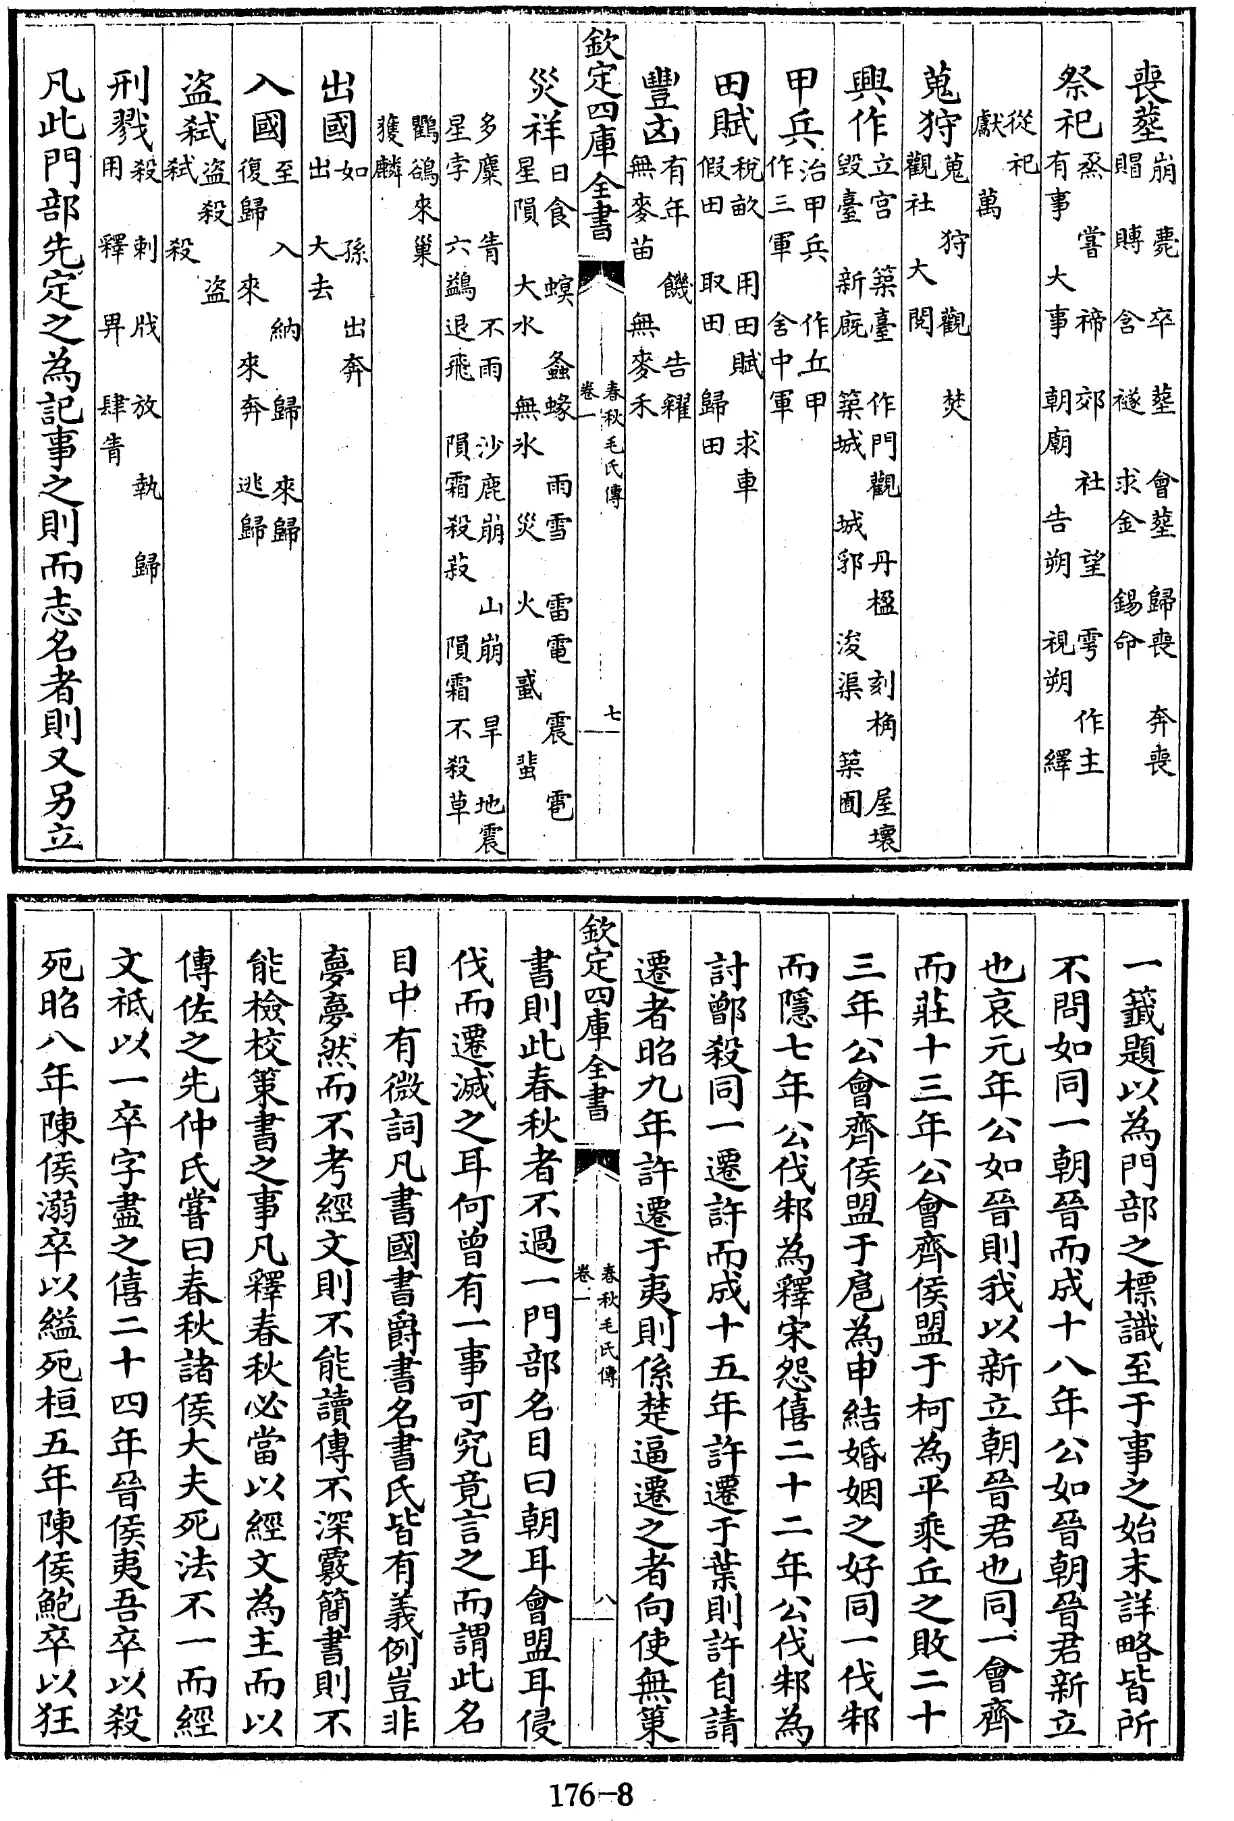 喪塟崩 薨 卒 塟 會塟 歸喪 奔喪
賵 賻 含 襚 求金 錫命
祭祀烝 嘗 禘 郊 社 望 雩 作主
有事 大事 朝廟 告朔 視朔 繹
從祀
獻 萬
蒐狩蒐 狩 觀 焚
觀社 大閱
興作立宫 築臺 作門觀 丹楹 刻桷 屋壞
毀臺 新廐 築城 城郛 浚渠 築囿
甲兵治甲兵 作丘甲
作三軍 舍中軍
田賦稅畝 用田賦 求車
假田 取田 歸田
豐凶有年 饑 告糴
無麥苗 無麥禾
欽定四庫全書
春秋毛氏傳
卷一
七
災祥日食 螟 螽蝝 雨雪 雷電 震 雹
星隕 大水 無氷 災 火 蜮 蜚
多麋 眚 不雨 沙鹿崩 山崩 旱 地震
星孛 六鷁退飛 隕霜殺菽 隕霜不殺草
鸜鵒來巢
獲麟
出國如 孫 出奔
出 大去
入國至 入 納 歸 來歸
復歸 來 來奔 逃歸
盗弑盗殺 盗
弑 殺
刑戮殺 刺 戕 放 執 歸
用 釋 畀 肆眚
凡此門部先定之為記事之則而志名者則又另立
一籤題以為門部之標識至于事之始末詳略皆所
不問如同一朝晉而成十八年公如晉朝晉君新立
也哀元年公如晉則我以新立朝晉君也同一會齊
而莊十三年公會齊侯盟于柯為平乘丘之敗二十
三年公會齊侯盟于扈為申結婚姻之好同一伐邾
而隱七年公伐邾為釋宋怨僖二十二年公伐邾為
討鄫殺同一遷許而成十五年許遷于葉則許自請
遷者昭九年許遷于夷則係楚逼遷之者向使無策
欽定四庫全書
春秋毛氏傳
卷一
八
書則此春秋者不過一門部名目曰朝耳會盟耳侵
伐而遷滅之耳何曾有一事可究竟言之而謂此名
目中有微詞凡書國書爵書名書氏皆有義例豈非
夢夢然而不考經文則不能讀傳不深覈簡書則不
能檢校策書之事凡釋春秋必當以經文為主而以
傳佐之先仲氏嘗曰春秋諸侯大夫死法不一而經
文祗以一卒字盡之僖二十四年晉侯夷吾卒以殺
死昭八年陳侯溺卒以縊死桓五年陳侯鮑卒以狂
176-8